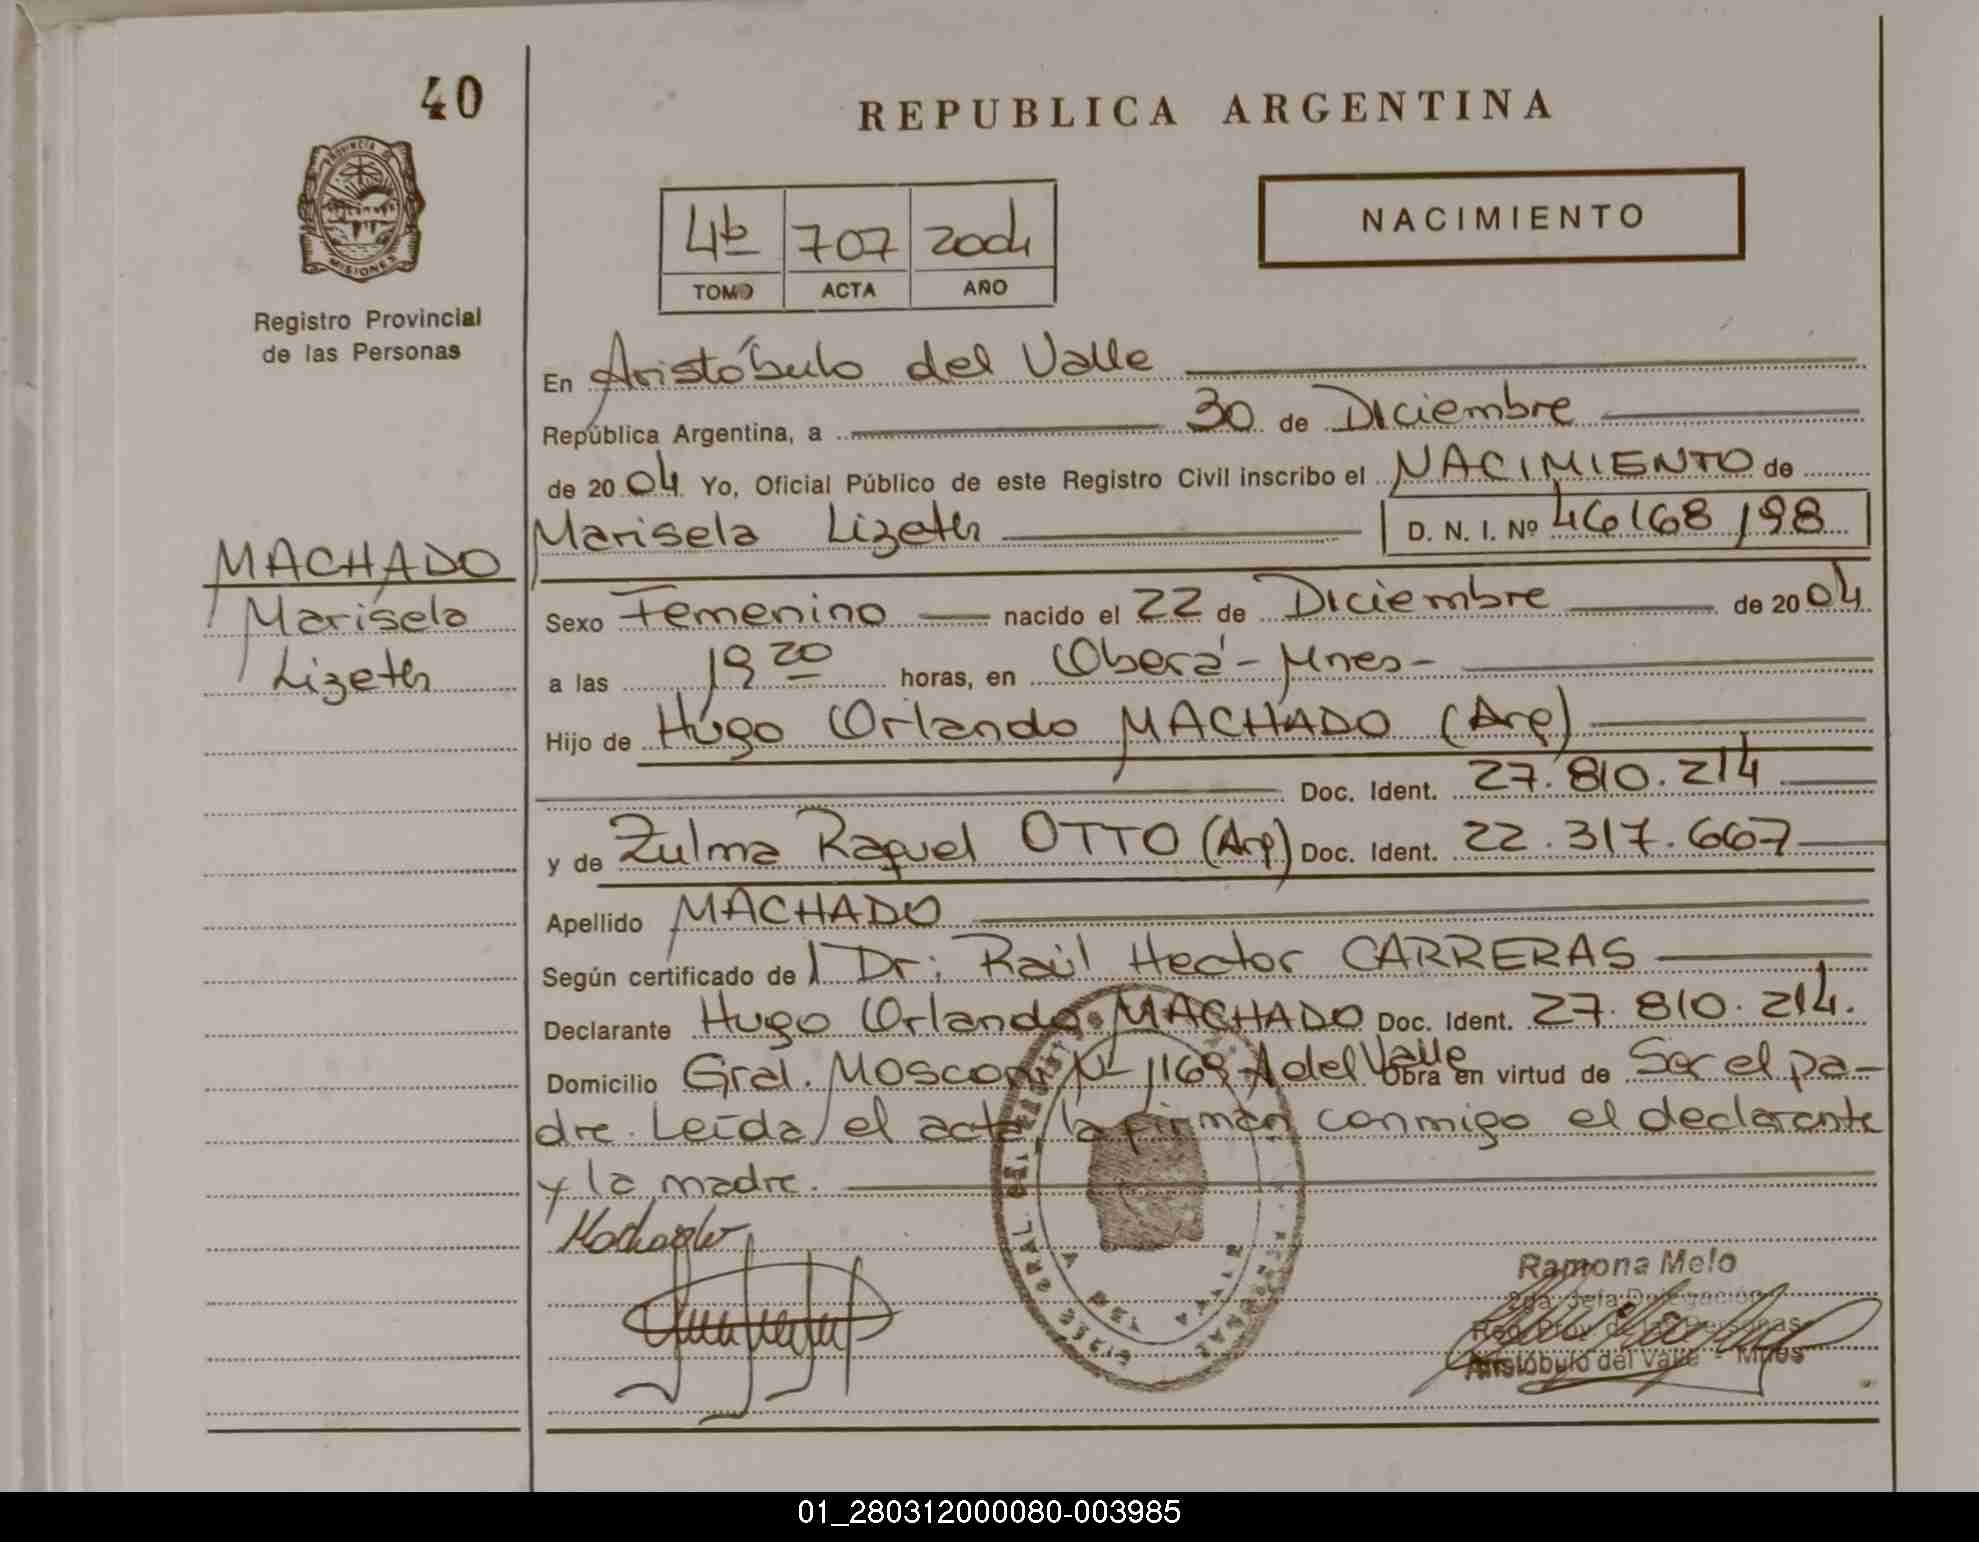 40
PROVINCIA DE
MISIONES
Registro Provincial
de las Personas
MACHADO
Marisela
Lizeth
REPUBLICA ARGENTINA
NACIMIENTO
4b 707 2004
TOMO ACTA AÑO
En Aristóbulo del Valle
República Argentina, a 30 de Diciembre
de 2004 Yo, Oficial Público de este Registro Civil inscribo el NACIMIENTO de
Marisela Lizeth D. N. I. Nº 46168198
Sexo Femenino nacido el 22 de Diciembre de 2004
a las 19 20 horas, en Oberá - Mnes -
Hijo de Hugo Orlando MACHADO (Arg)
Doc. Ident. 27.810.214
y de Zulma Raquel OTTO (Arg) Doc. Ident. 22.317.667
Apellido MACHADO
Según certificado de Dr: Raúl Hector CARRERAS
Declarante Hugo Orlando MACHADO Doc. Ident. 27.810.214.
Domicilio Gral. Mosconi Nº 1169 A del Valle Obra en virtud de Ser el pa-
dre. Leída el acta, la firman conmigo el declarante
y la madre.
Machado
Ramona Melo
2da. Jefa Delegación
Reg. Prov. de las Personas
Aristóbulo del Valle - Mnes
01_280312000080-003985